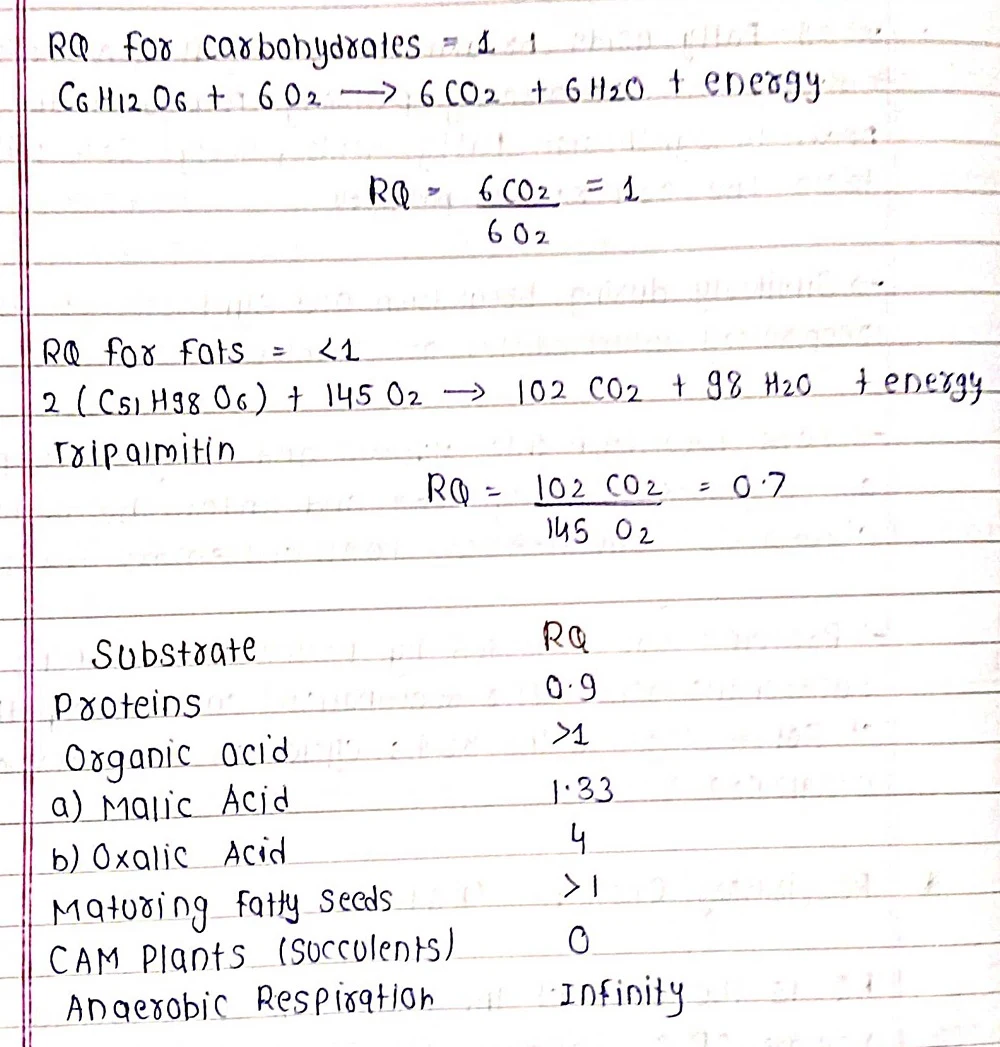 RQ for carbohydrates = 1
C6 H12 O6 + 6 O2 → 6 CO2 + 6 H2O + energy
RQ = 6 CO2 / 6 O2 = 1
RQ for fats = <1
2 ( C51 H98 O6 ) + 145 O2 → 102 CO2 + 98 H2O + energy
Tripalmitin
RQ = 102 CO2 / 145 O2 = 0.7
Substrate RQ
Proteins 0.9
Organic acid >1
a) Malic Acid 1.33
b) Oxalic Acid 4
Maturing fatty seeds >1
CAM Plants (Succulents) 0
Anaerobic Respiration Infinity